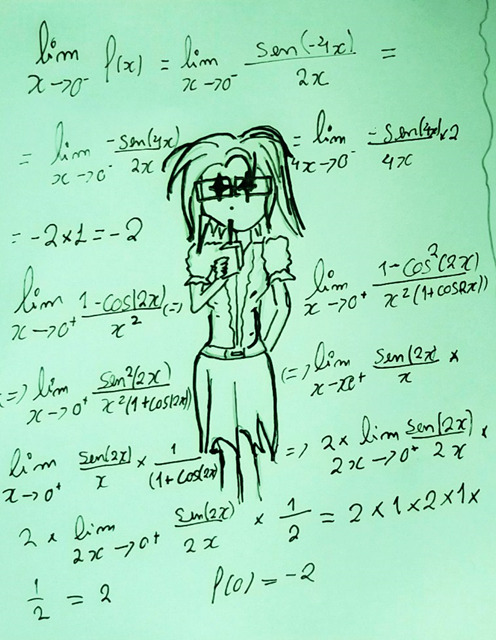 lim x→0⁻ f(x) = lim x→0⁻ sen(-4x)/2x =
= lim x→0⁻ -sen(4x)/2x = lim 4x→0⁻ -sen(4x)×2/4x
= -2×1 = -2
lim x→0⁺ 1-cos(2x)/x² (=) lim x→0⁺ 1-cos²(2x)/x²(1+cos2x)
(=) lim x→0⁺ sen²(2x)/x²(1+cos(2x)) (=) lim x→0⁺ sen(2x)/x ×
lim x→0⁺ sen(2x)/x × 1/(1+cos(2x) (=) 2 × lim 2x→0⁺ sen(2x)/2x ×
2 × lim 2x→0⁺ sen(2x)/2x × 1/2 = 2×1×2×1×
1/2 = 2 f(0) = -2